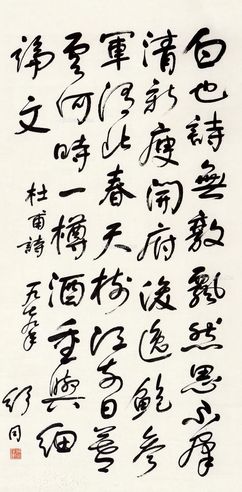 白也詩無敵飄然思不羣
清新庾開府俊逸鮑參
軍渭北春天樹江東日暮
雲何時一樽酒重與細
論文
杜甫詩
一九七九年
舒同